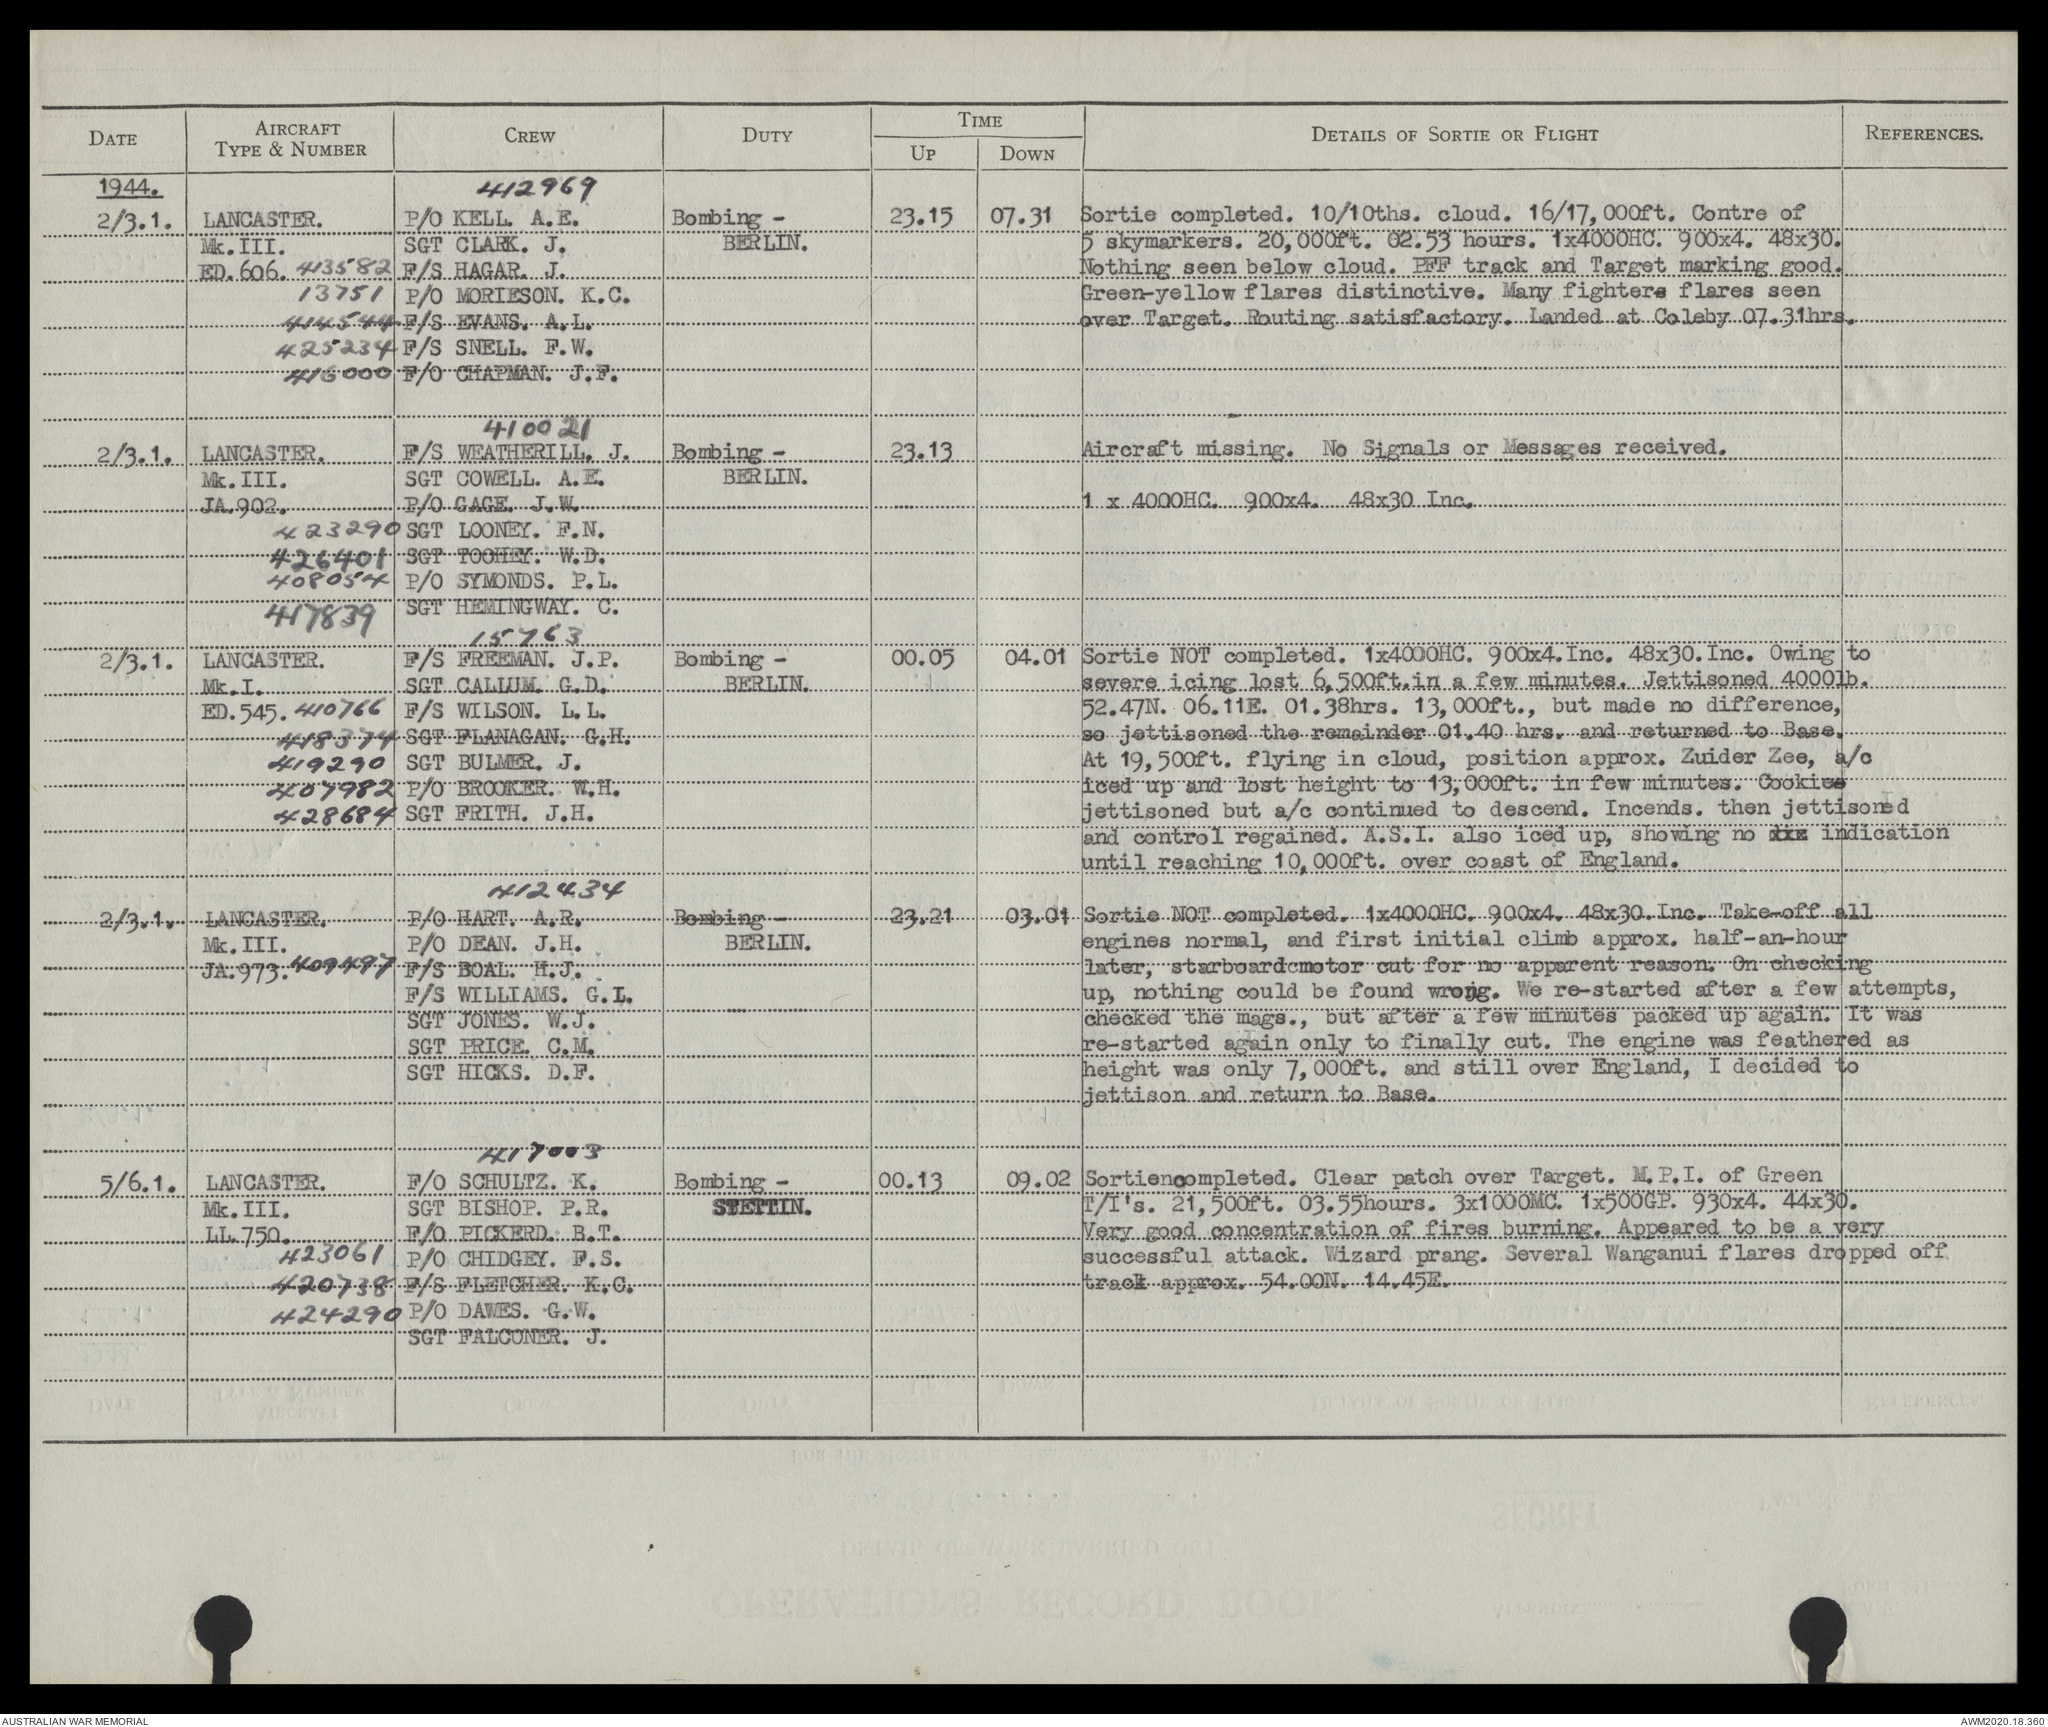 DATE AIRCRAFT TYPE & NUMBER CREW DUTY TIME UP DOWN DETAILS OF SORTIE OR FLIGHT REFERENCES.
1944. 412969
2/3.1. LANCASTER. P/O KELL. A.E. Bombing - 23.15 07.31 Sortie completed. 10/10ths. cloud. 16/17,000ft. Contre of
Mk.III. SGT CLARK. J. BERLIN. 5 skymarkers. 20,000ft. 02.53 hours. 1x4000HC. 900x4. 48x30.
ED.606. 413582 F/S HAGAR. J. Nothing seen below cloud. PFF track and Target marking good.
13751 P/O MORIESON. K.C. Green-yellow flares distinctive. Many fighters flares seen
414544 F/S EVANS. A.L. over Target. Routing satisfactory. Landed at Coleby 07.31hrs.
425234 F/S SNELL. F.W.
416000 F/O CHAPMAN. J.F.
410021
2/3.1. LANCASTER. F/S WEATHERILL. J. Bombing - 23.13 Aircraft missing. No Signals or Messages received.
Mk.III. SGT COWELL. A.E. BERLIN.
JA.902. P/O GAGE. J.W. 1 x 4000HC. 900x4. 48x30 Inc.
423290 SGT LOONEY. F.N.
426401 SGT TOOHEY. W.D.
408054 P/O SYMONDS. P.L.
417839 SGT HEMINGWAY. C.
15763
2/3.1. LANCASTER. F/S FREEMAN. J.P. Bombing - 00.05 04.01 Sortie NOT completed. 1x4000HC. 900x4.Inc. 48x30.Inc. Owing to
Mk.I. SGT CALLUM. G.D. BERLIN. severe icing lost 6,500ft.in a few minutes. Jettisoned 4000lb.
ED.545. 410766 F/S WILSON. L.L. 52.47N. 06.11E. 01.38hrs. 13,000ft., but made no difference,
418374 SGT FLANAGAN. G.H. so jettisoned the remainder 01.40 hrs. and returned to Base.
419290 SGT BULMER. J. At 19,500ft. flying in cloud, position approx. Zuider Zee, a/c
407982 P/O BROOKER. W.H. iced up and lost height to 13,000ft. in few minutes. Cookies
428684 SGT FRITH. J.H. jettisoned but a/c continued to descend. Incends. then jettisoned
and control regained. A.S.I. also iced up, showing no indication
until reaching 10,000ft. over coast of England.
412434
2/3.1. LANCASTER. P/O HART. A.R. Bombing - 23.21 03.01 Sortie NOT completed. 1x4000HC. 900x4. 48x30. Inc. Take-off all
Mk.III. P/O DEAN. J.H. BERLIN. engines normal, and first initial climb approx. half-an-hour
JA.973. 409497 F/S BOAL. H.J. later, starboardcmotor cut for no apparent reason. On checking
F/S WILLIAMS. G.L. up, nothing could be found wrong. We re-started after a few attempts,
SGT JONES. W.J. checked the mags., but after a few minutes packed up again. It was
SGT PRICE. C.M. re-started again only to finally cut. The engine was feathered as
SGT HICKS. D.F. height was only 7,000ft. and still over England, I decided to
jettison and return to Base.
417003
5/6.1. LANCASTER. F/O SCHULTZ. K. Bombing - 00.13 09.02 Sortiencompleted. Clear patch over Target. M.P.I. of Green
Mk.III. SGT BISHOP. P.R. STETTIN. T/I's. 21,500ft. 03.55hours. 3x1000MC. 1x500GP. 930x4. 44x30.
LL.750. F/O PICKERD. B.T. Very good concentration of fires burning. Appeared to be a very
423061 P/O CHIDGEY. F.S. successful attack. Wizard prang. Several Wanganui flares dropped off
420738 F/S FLETCHER. K.C. track approx. 54.00N. 14.45E.
424290 P/O DAWES. G.W.
SGT FALCONER. J.
AUSTRALIAN WAR MEMORIAL AWM2020.18.360